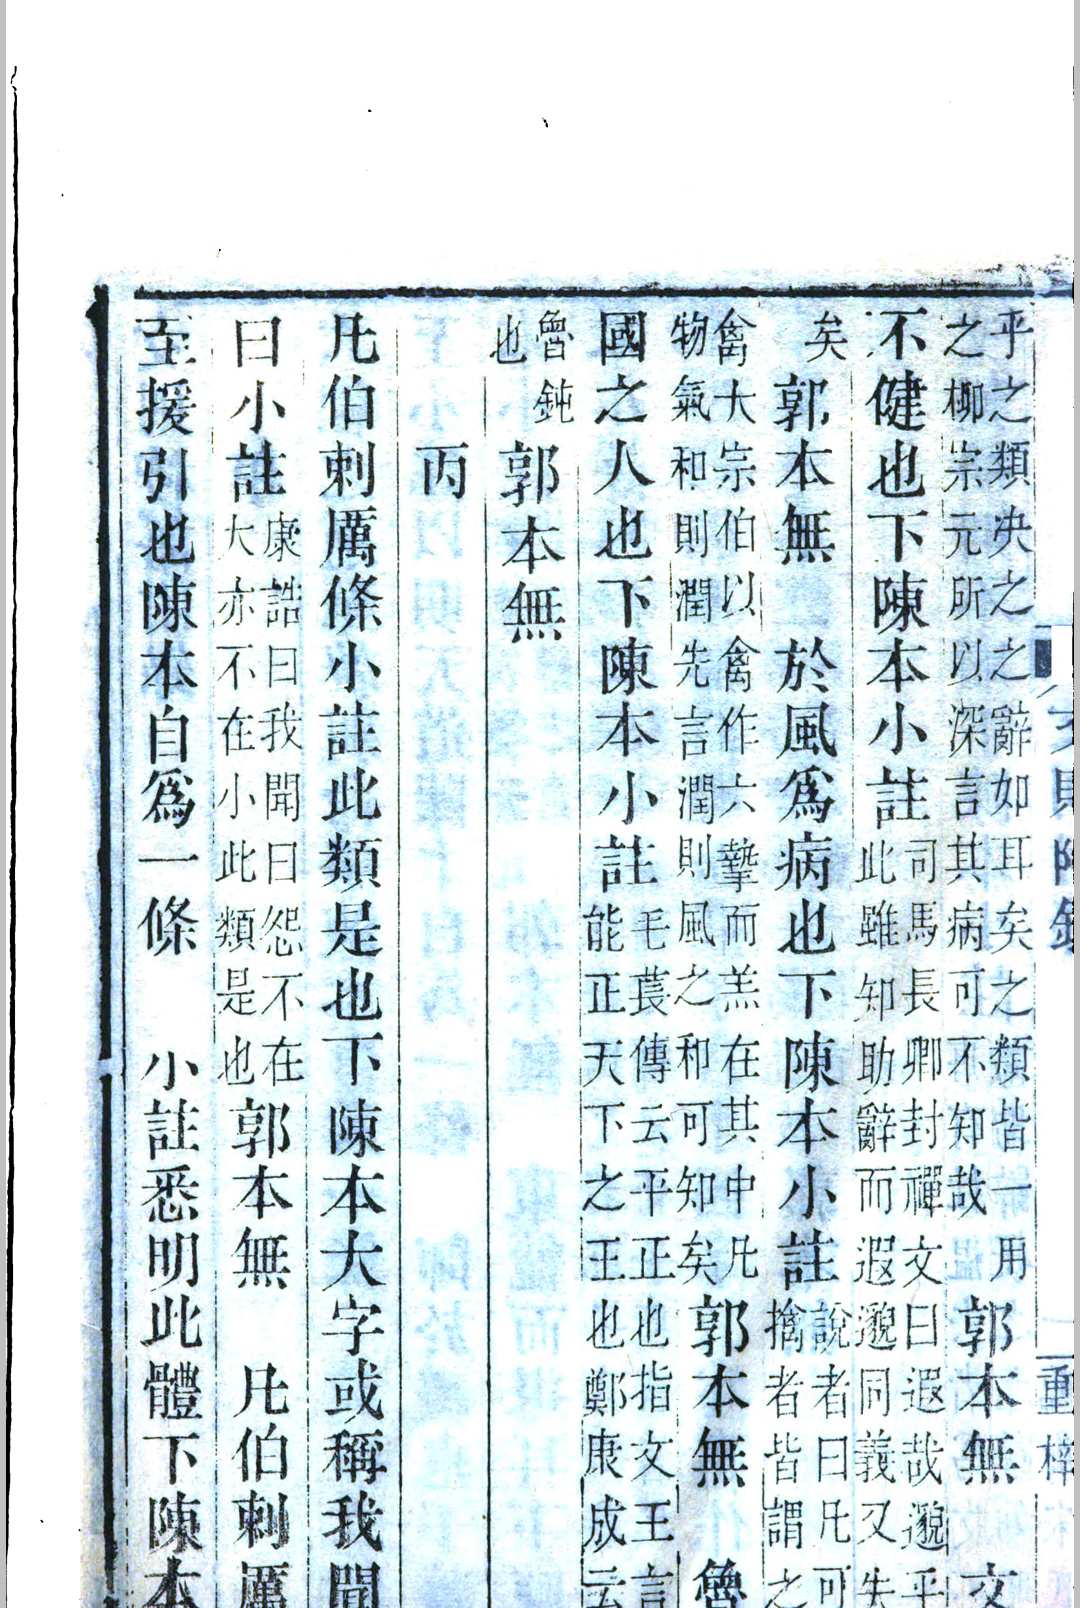 乎之類决之之辭如耳矣之類皆一用
之柳宗元所以深言其病可不知哉
郭本無　文
不健也下陳本小註
司馬長卿封禪文曰遐哉邈乎
此雖知助辭而遐邈同義又失
矣
郭本無　於風爲病也下陳本小註
說者曰凡可
擒者皆謂之
禽大宗伯以禽作六摯而羔在其中凡
物氣和則潤先言潤則風之和可知矣
郭本無　魯
國之人也下陳本小註
毛萇傳云平正也指文王言
能正天下之王也鄭康成云
魯鈍
也
郭本無
丙
凡伯刺厲條小註此類是也下陳本大字或稱我聞
曰小註
康誥曰我聞曰怨不在
大亦不在小此類是也
郭本無　凡伯刺厲
至援引也陳本自爲一條　小註悉明此體下陳本